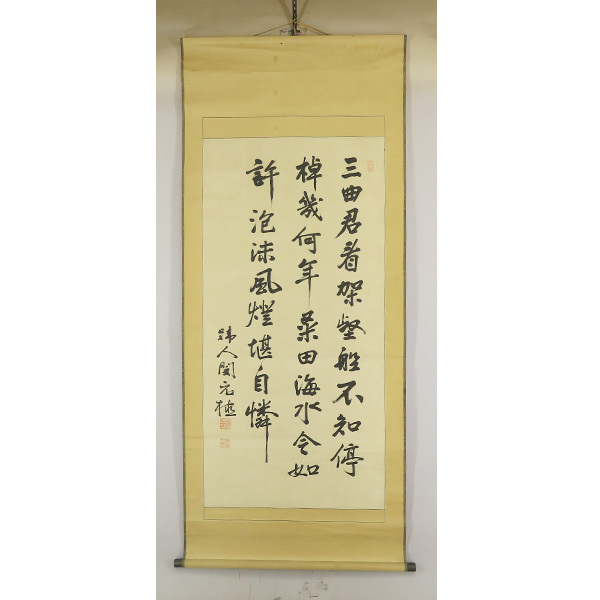 三曲君看架壑船不知停
棹幾何年桑田海水今如
許泡沫風燈堪自憐
韓人閔元植